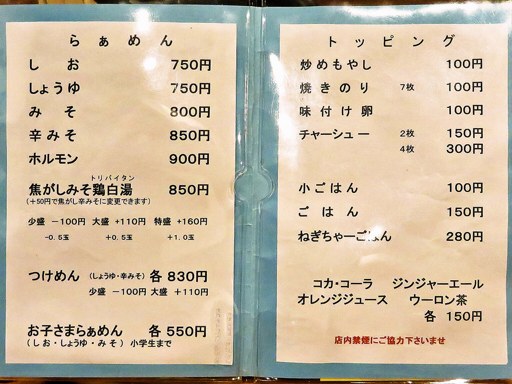 らぁめん
しお 750円
しょうゆ 750円
みそ 800円
辛みそ 850円
ホルモン 900円
トリパイタン
焦がしみそ鶏白湯 850円
（+50円で焦がし辛みそに変更できます）
少盛 －100円 大盛 +110円 特盛 +160円
-0.5玉 +0.5玉 +1.0玉
つけめん （しょうゆ・辛みそ） 各 830円
少盛 －100円 大盛 ＋110円
お子さまらぁめん 各 550円
（しお・しょうゆ・みそ） 小学生まで
トッピング
炒めもやし 100円
焼きのり 7枚 100円
味付け卵 100円
チャーシュー 2枚 150円
4枚 300円
小ごはん 100円
ごはん 150円
ねぎちゃーごはん 280円
コカ・コーラ ジンジャーエール
オレンジジュース ウーロン茶
各 150円
店内禁煙にご協力下さいませ